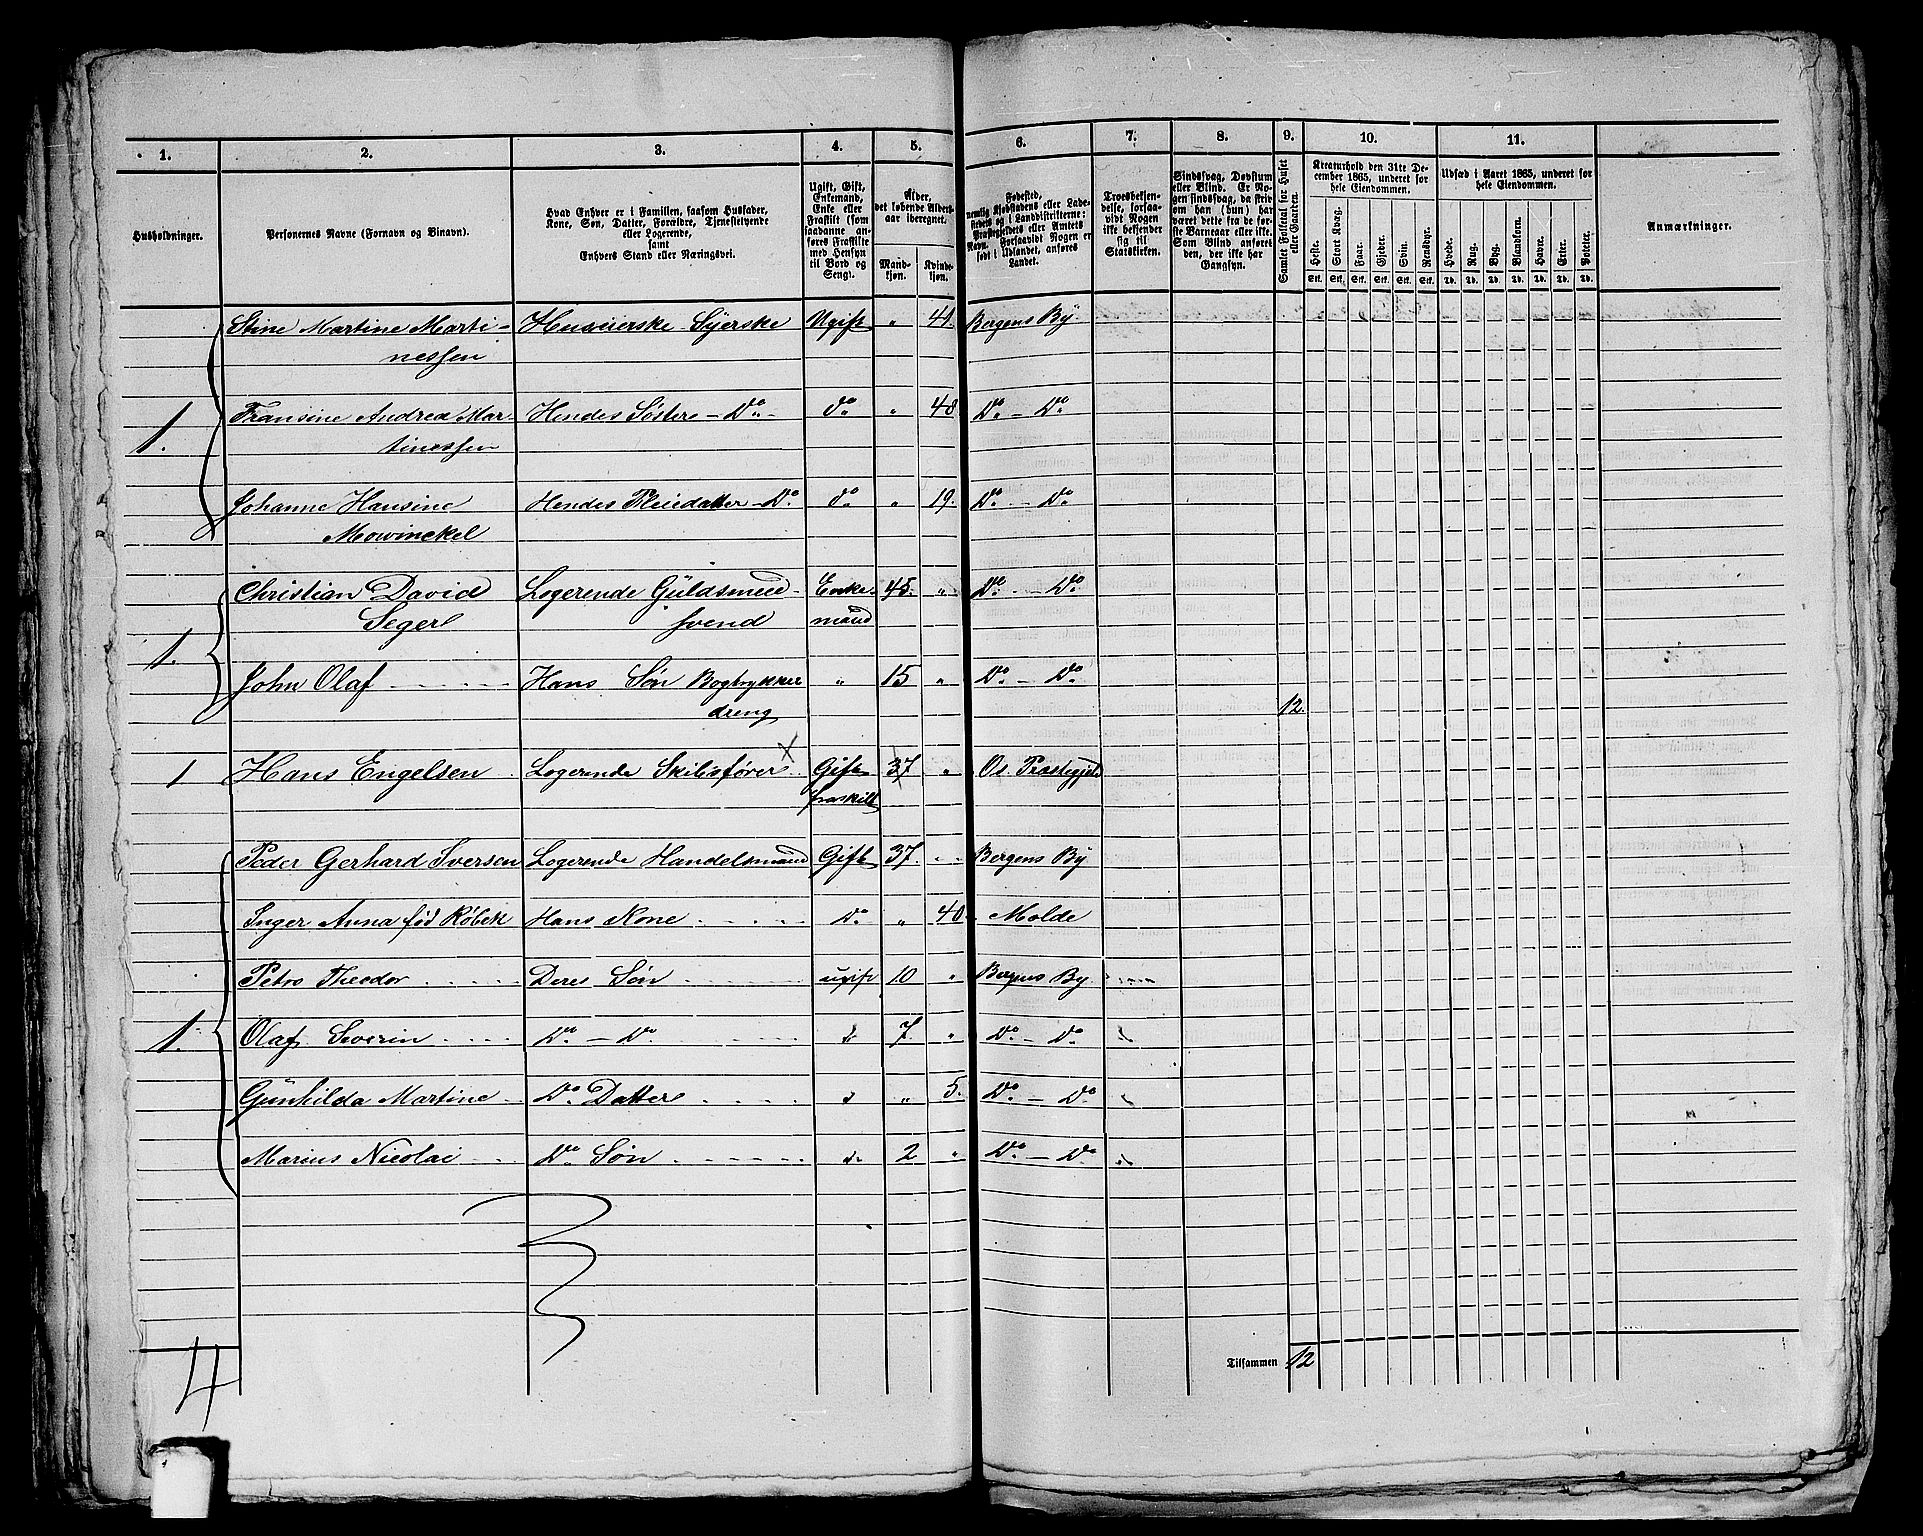 1. 2. 3. 4. 5. 6. 7. 8. 9. 10. 11.
Husholdninger.
Personernes Navne (Fornavn og Binavn).
Hvad Enhver er i Familien, saasom Husfader,
Kone, Søn, Datter, Forældre, Tjenestetyende
eller Logerende,
samt
Enhvers Stand eller Næringsvei.
Ugift, Gift,
Enkemand,
Enke eller
Fraskilt (som
saadanne an-
føres Fraskilte
med Hensyn
til Bord og
Seng).
Alder,
det løbende Alders-
aar iberegnet.
Mand-
kjøn.
Kvinde-
kjøn.
Fødested,
nemlig Kjøbstadens eller Lade-
stedets og i Landdistrikterne:
Præstegjeldets eller Amtets
Navn. Forsaavidt Nogen er
født i Udlandet, anføres
Landet.
Troesbekjen-
delse, forsaa-
vidt Nogen
ikke bekjender
sig til
Statskirken.
Sindssvag, Døvstum
eller Blind. Er No-
gen sindssvag, da skriv
om han (hun) har
været dette fra de før-
ste Barneaar eller ikke.
Som Blind anføres
den, der ikke har
Gangsyn.
Samlet Folketal for Huset
eller Gaarden.
Kreaturhold den 31te De-
cember 1865, underet for
hele Eiendommen.
Heste. Stort Kvæg. Faar. Gjeder. Svin. Rensdyr.
Stk. Stk. Stk. Stk. Stk. Stk.
Udsæd i Aaret 1865, underet for
hele Eiendommen.
Hvede. Rug. Byg. Blandkorn. Havre. Erter. Poteter.
Td. Td. Td. Td. Td. Td. Td.
Anmærkninger.
Stine Martine Marti- Husseierske Syerske Ugift " 41. Bergens By
nessen
1. Fransine Andrea Mar- Hendes Søster - Do - do " 48 Do - Do
tinessen
Johanne Hansine Hendes Pleiedatter - Do. do " 19. Do - Do
Mowinckel
Christian David Logerende Güldsmed- Enke- 45. " Do - Do
Segerl svend mand
1.
John Olaf Hans Søn Bogtrykker " 15 " Do - Do
dreng 12.
1 Hans Engelsen Logerende Skibsfører X Gift 37 " Os Præstegjeld
fraskilt
Peder Gerhard Iversen Logerende Handelsmand Gift 37. " Bergens By
Inger Anna fød Røbek Hans Kone Do " 40. Molde
Petro Theodor Deres Søn ugift 10 " Bergens By
1. Olaf Severin Do - Do 7. " Do - Do
Günhilda Martine Do Datter " 5. Do - Do
Marius Nicolai Do Søn 2 " Do - Do
Tilsammen 12
4